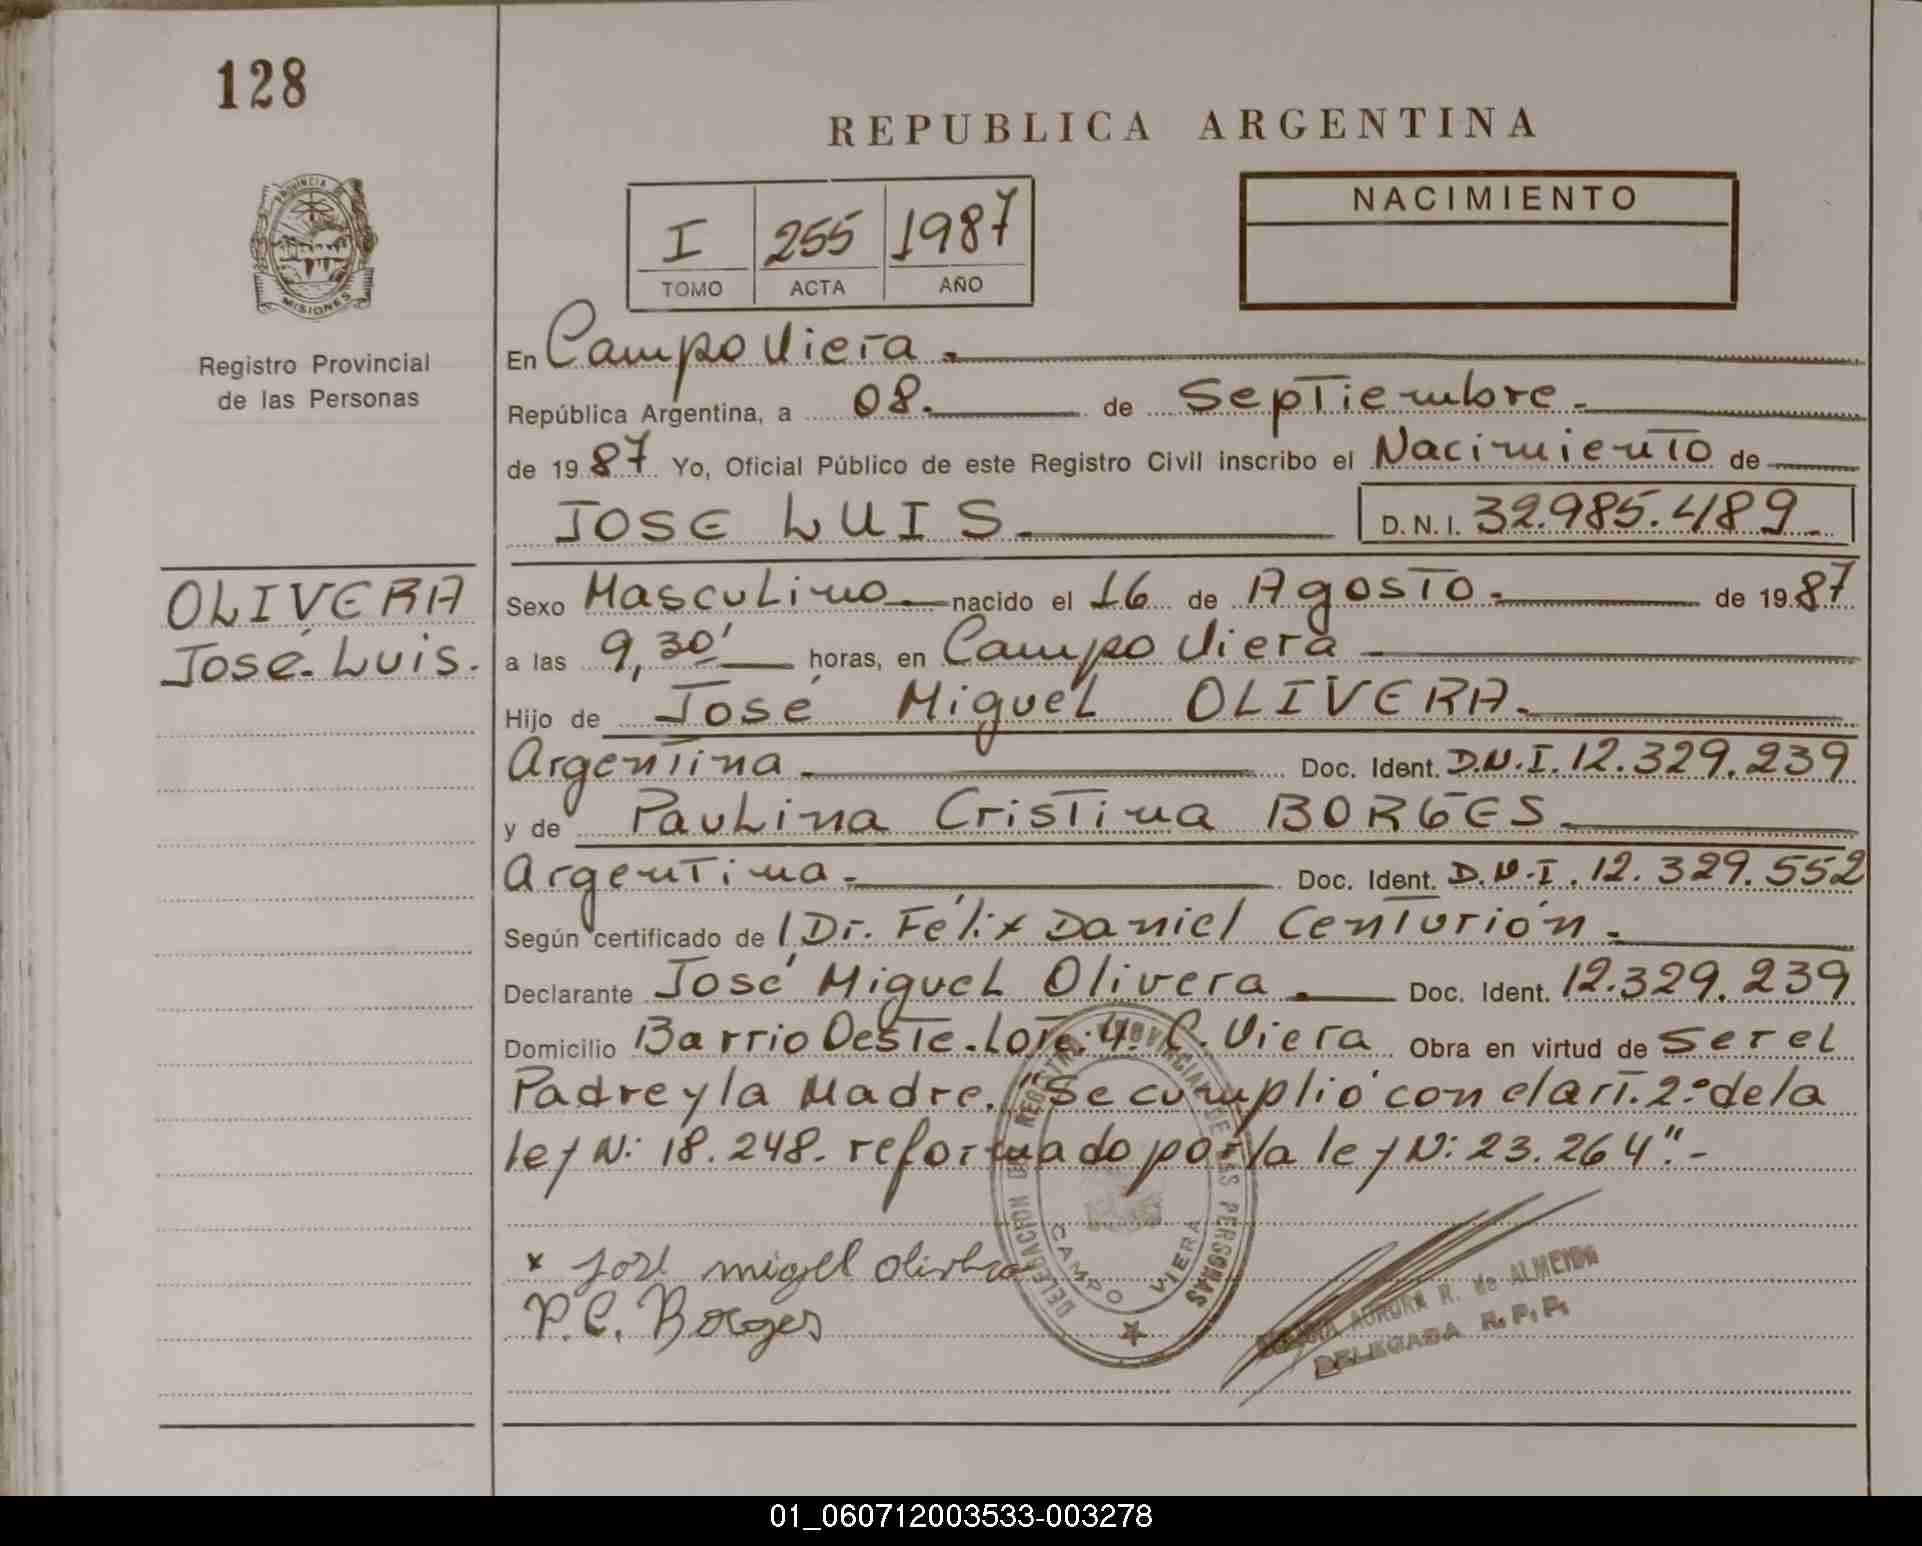 128
REPUBLICA ARGENTINA
PROVINCIA DE
MISIONES
Registro Provincial
de las Personas
I 255 1987
TOMO ACTA AÑO
NACIMIENTO
En Campo Viera.
República Argentina, a 08. de Septiembre.
de 1987 Yo, Oficial Público de este Registro Civil inscribo el Nacimiento de
JOSE LUIS. D.N.I. 32.985.489.
OLIVERA
José Luis.
Sexo Masculino nacido el 16 de Agosto. de 1987
a las 9,30' horas, en Campo Viera
Hijo de José Miguel OLIVERA.
Argentina. Doc. Ident. D.N.I. 12.329.239
y de Paulina Cristina BORGES.
Argentina. Doc. Ident. D.N.I. 12.329.552
Según certificado de Dr. Félix Daniel Centurión.
Declarante José Miguel Olivera. Doc. Ident. 12.329.239
Domicilio Barrio Oeste. Lote. 4. C. Viera Obra en virtud de Ser el
Padre y la Madre. "Se cumplió con el art. 2º de la
ley N: 18.248. reformado por la ley N: 23.264".-
DELEGACION DEL REGISTRO PROVINCIAL DE LAS PERSONAS
CAMPO VIERA
x José migel olivera
P.C. Borges
AURORA R. de ALMEIDA
DELEGADA R.P.P.
01_060712003533-003278